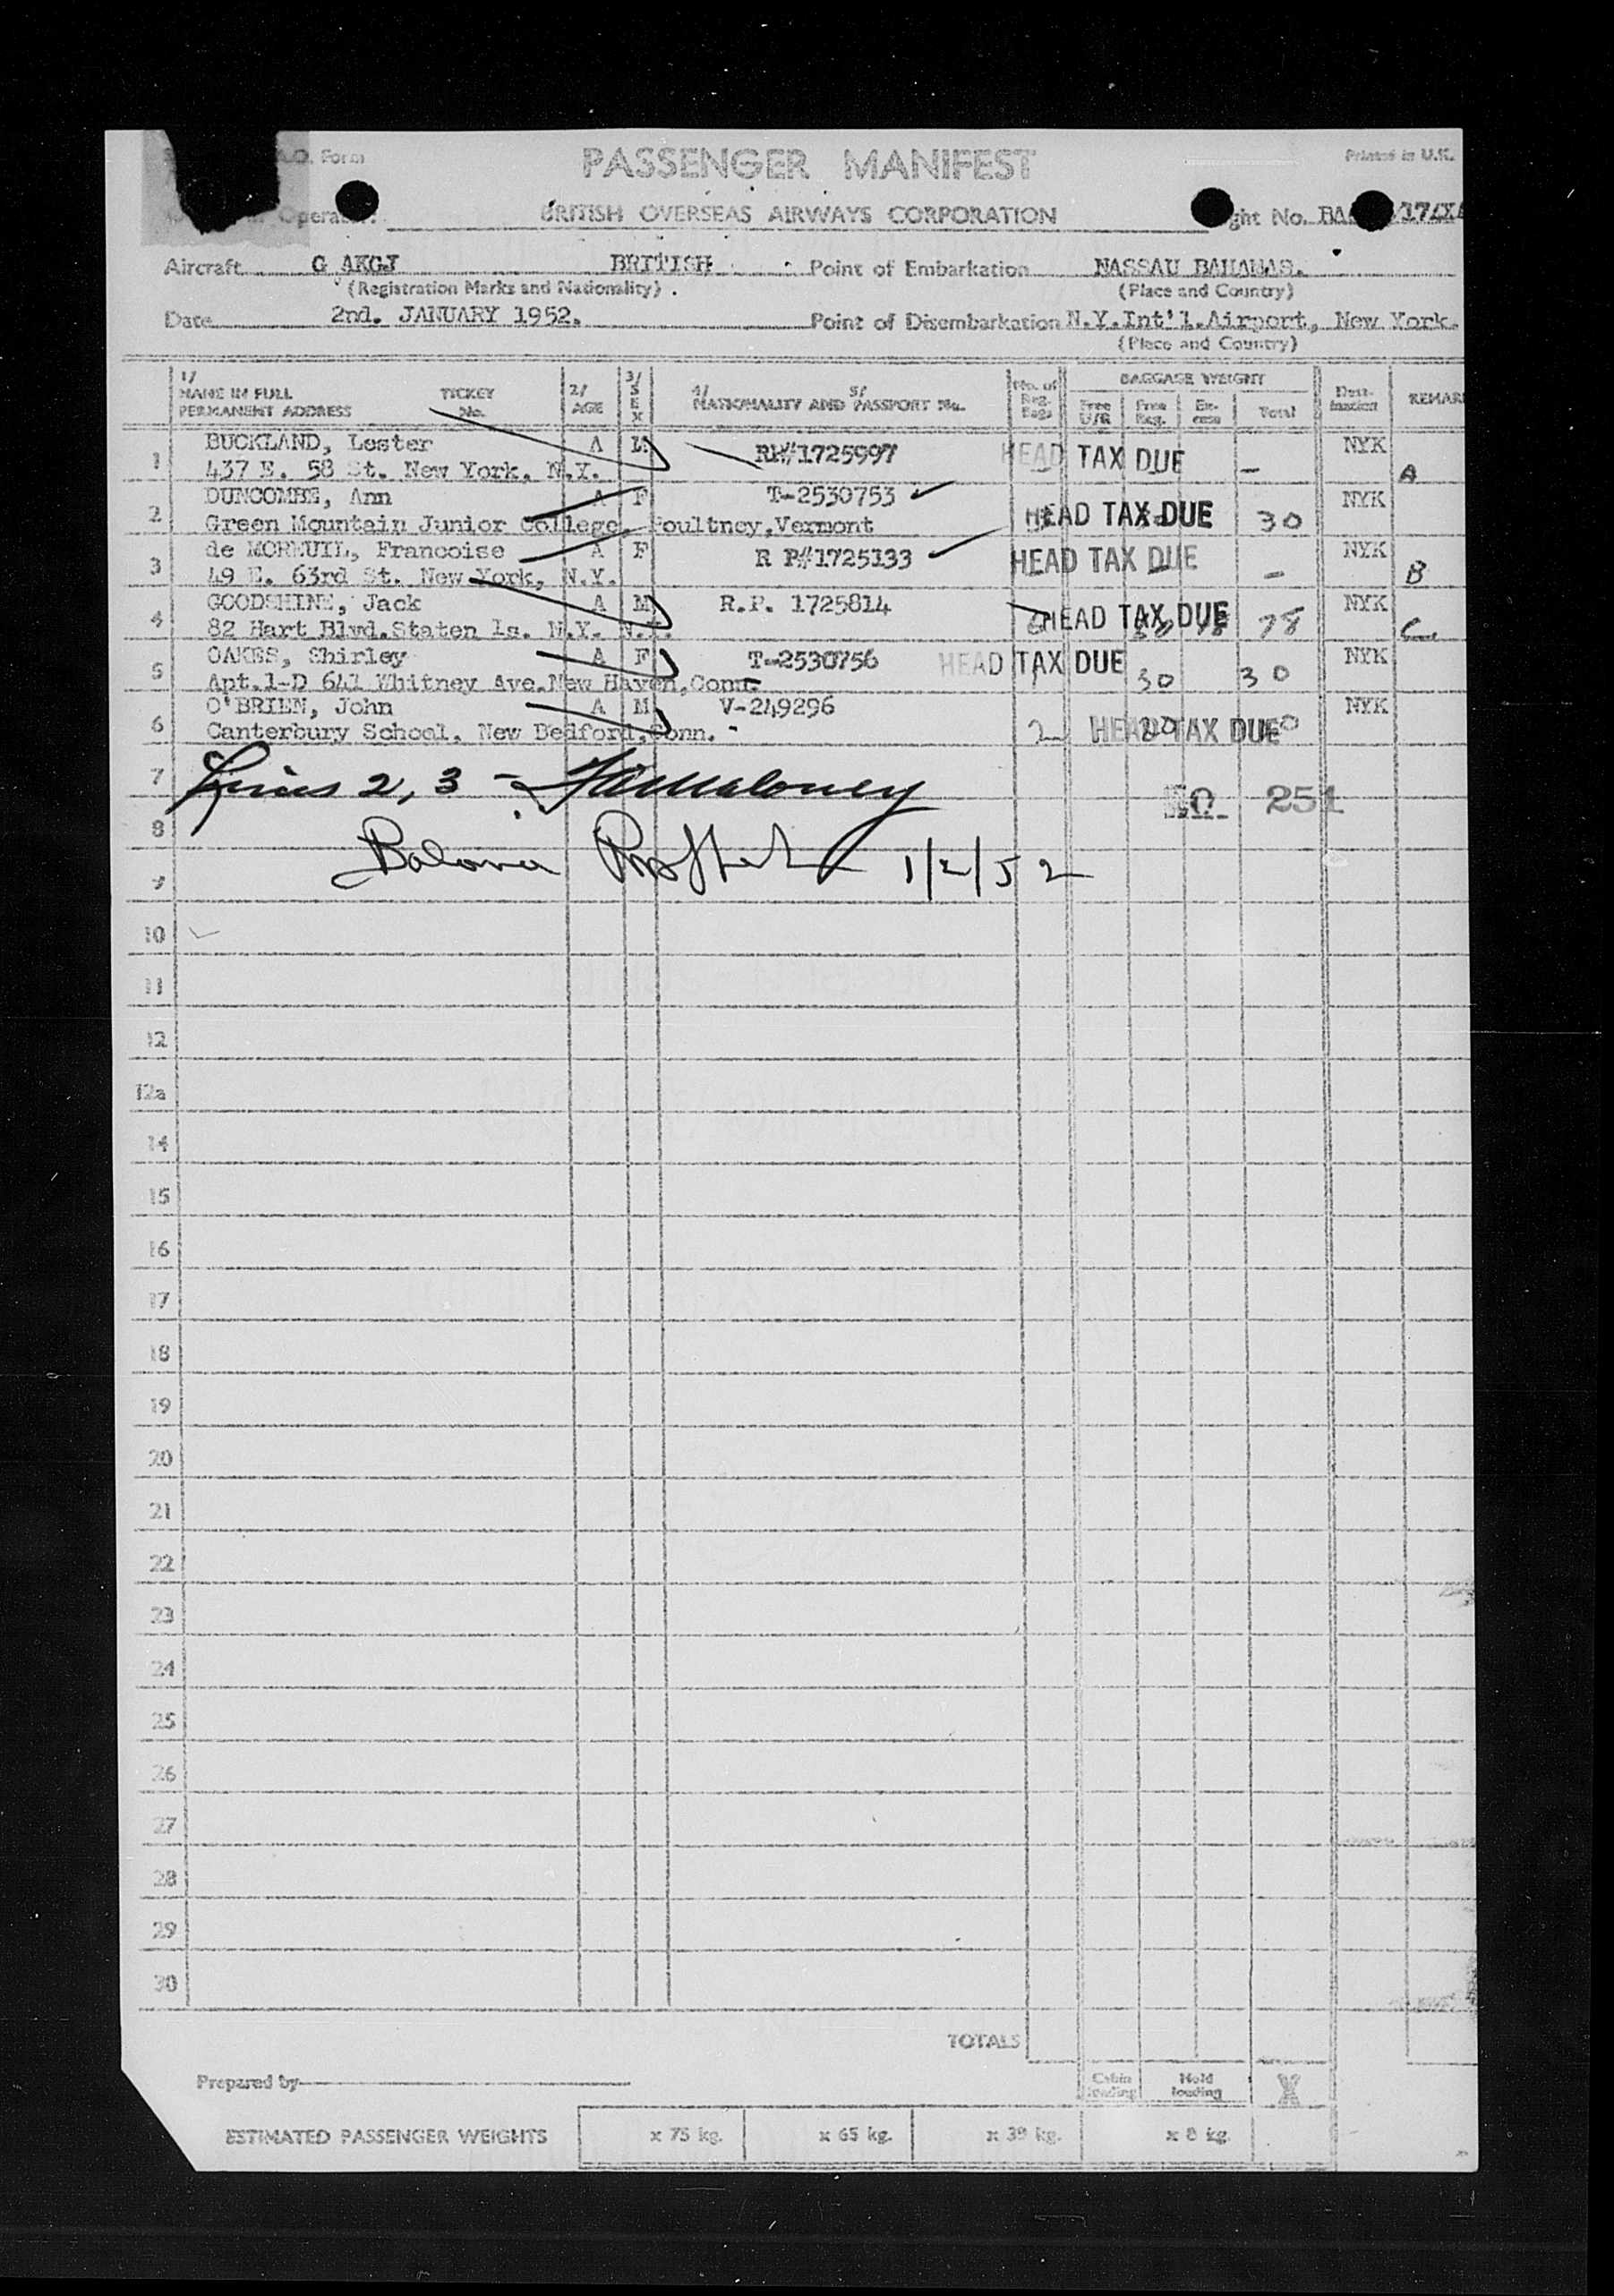 A.O. Form
PASSENGER MANIFEST
Printed in U.K.
BRITISH OVERSEAS AIRWAYS CORPORATION
ght No. BA /17/
Aircraft G AKGJ BRITISH Point of Embarkation NASSAU BAHAMAS.
(Registration Marks and Nationality) (Place and Country)
Date 2nd. JANUARY 1952. Point of Disembarkation N.Y.Int'l.Airport, New York.
(Place and Country)
1/ NAME IN FULL PERMANENT ADDRESS TICKET No. 2/ AGE 3/ SEX 4/ 5/ NATIONALITY AND PASSPORT No. No. of Reg. Bags BAGGAGE WEIGHT Free U/R Free Reg. Ex-cess Total Desti-nation REMAR
1 BUCKLAND, Lester A M RP#1725997 HEAD TAX DUE - NYK A
437 E. 58 St. New York, N.Y.
2 DUNCOMBE, Ann A F T-2530753 HEAD TAX DUE 30 NYK
Green Mountain Junior College, Poultney, Vermont
3 de MOREUIL, Francoise A F R P#1725133 HEAD TAX DUE - NYK B
49 E. 63rd St. New York, N.Y.
4 GOODSHINE, Jack A M R.P. 1725814 HEAD TAX DUE 78 NYK C
82 Hart Blvd.Staten Is. N.Y. N.Y.
5 OAKES, Shirley A F T-2530756 HEAD TAX DUE 30 30 NYK
Apt.1-D 641 Whitney Ave.New Haven,Conn.
6 O'BRIEN, John A M V-249296 2 HEAD TAX DUE NYK
Canterbury School, New Bedford,Conn.
7 Lines 2, 3 - Maloney 251
8
9 1/2/52
10
11
12
12a
14
15
16
17
18
19
20
21
22
23
24
25
26
27
28
29
30
TOTALS
Prepared by Cabin loading Hold loading
ESTIMATED PASSENGER WEIGHTS x 75 kg. x 65 kg. x 39 kg. x 8 kg.